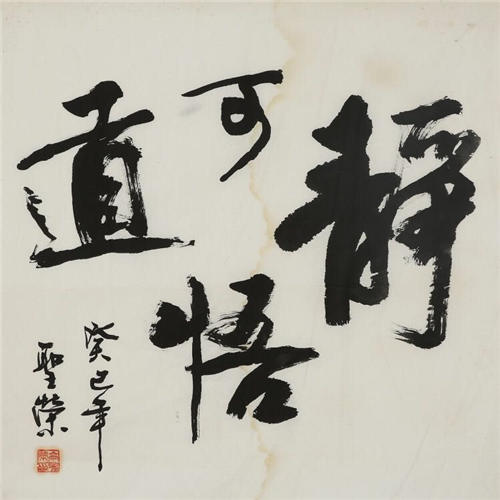 靜可悟道
癸巳年
聖榮